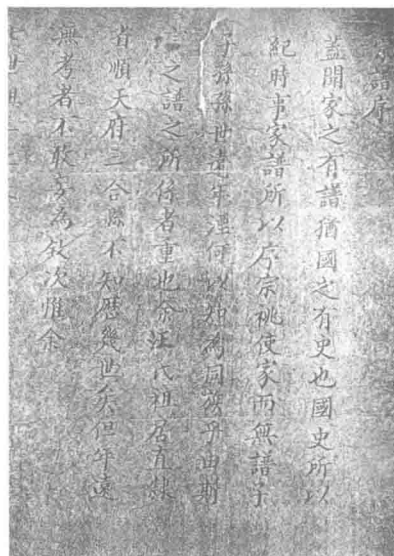 家譜序
蓋聞家之有譜猶國之有史也國史所以
紀時事家譜所以序宗祧使家而無譜子
子孫孫世遠年湮何以知為同族乎由斯
之譜之所係者重也余汪氏祖居直隸
省順天府三合縣不知歷幾世矣但年遠
無考者不敢妄為敘次惟余